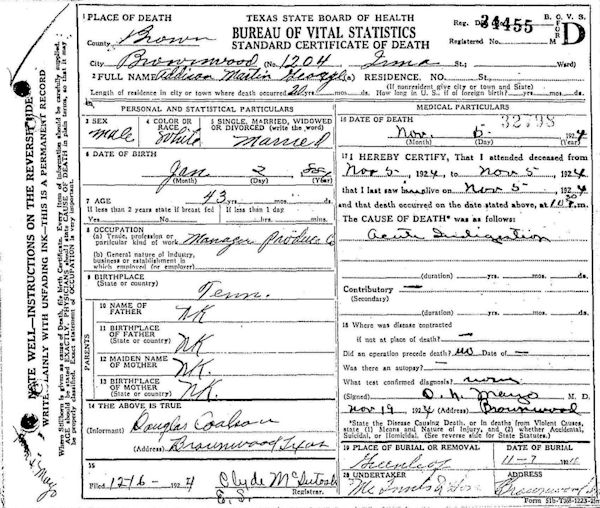 1 PLACE OF DEATH
TEXAS STATE BOARD OF HEALTH
BUREAU OF VITAL STATISTICS
STANDARD CERTIFICATE OF DEATH
Reg. Dis. 34455 B. O. V. S.
Registered No. FORM D
County Brown
City Brownwood (No. 1204 Irma St.; Ward)
2 FULL NAME Addison Martin (a) RESIDENCE. NO. St.;
(If nonresident give city or town and State)
Length of residence in city or town where death occurred 20 yrs. mos. ds. How long in U. S. if of foreign birth? yrs. mos. ds.
PERSONAL AND STATISTICAL PARTICULARS
3 SEX
male
4 COLOR OR RACE
White
5 SINGLE, MARRIED, WIDOWED OR DIVORCED (write the word)
Married
6 DATE OF BIRTH
Jan 2
(Month) (Day) (Year)
7 AGE 43 yrs. mos. ds.
If less than 2 years state if breast fed If less than 1 day
Yes No hrs. mins.
8 OCCUPATION
(a) Trade, profession or
particular kind of work Manager Produce Co
(b) General nature of industry,
business or establishment in
which employed (or employer)
9 BIRTHPLACE
(State or country) Tenn.
PARENTS
10 NAME OF FATHER NK
11 BIRTHPLACE OF FATHER NK
(State or country)
12 MAIDEN NAME OF MOTHER NK.
13 BIRTHPLACE OF MOTHER NK.
(State or country)
14 THE ABOVE IS TRUE
(Informant) Douglas Coalson
(Address) Brownwood Texas
15
Filed 12-16- 1924 Clyde McIntosh
Registrar.
E. S.
MEDICAL PARTICULARS
16 DATE OF DEATH
32798
Nov. 5 1924
(Month) (Day) (Year)
17 I HEREBY CERTIFY, That I attended deceased from
Nov 5, 1924 to Nov 5, 1924
that I last saw him alive on Nov 5, 1924
and that death occurred on the date stated above, at 10 P.m.
The CAUSE OF DEATH* was as follows:
Acute Indigestion
(duration) yrs. mos. ds.
Contributory —
(Secondary)
(duration) yrs. mos. ds.
18 Where was disease contracted
if not at place of death? —
Did an operation precede death? no Date of —
Was there an autopsy? —
What test confirmed diagnosis? none
(Signed) O. N. Mayo M. D.
Nov 19 1924 (Address) Brownwood
*State the Disease Causing Death, or in deaths from Violent Causes,
state (1) Means and Nature of Injury, and (2) whether Accidental,
Suicidal, or Homicidal. (See reverse side for State Statutes.)
19 PLACE OF BURIAL OR REMOVAL
Greenleaf
DATE OF BURIAL
11-7 19
20 UNDERTAKER
McInnis & Son
ADDRESS
Brownwood
NOTE WELL—INSTRUCTIONS ON THE REVERSE SIDE
WRITE PLAINLY WITH UNFADING INK—THIS IS A PERMANENT RECORD
AGE should be stated EXACTLY. PHYSICIANS should state CAUSE OF DEATH in plain terms, so that it may
be properly classified. Exact statement of OCCUPATION is very important.
Mayo